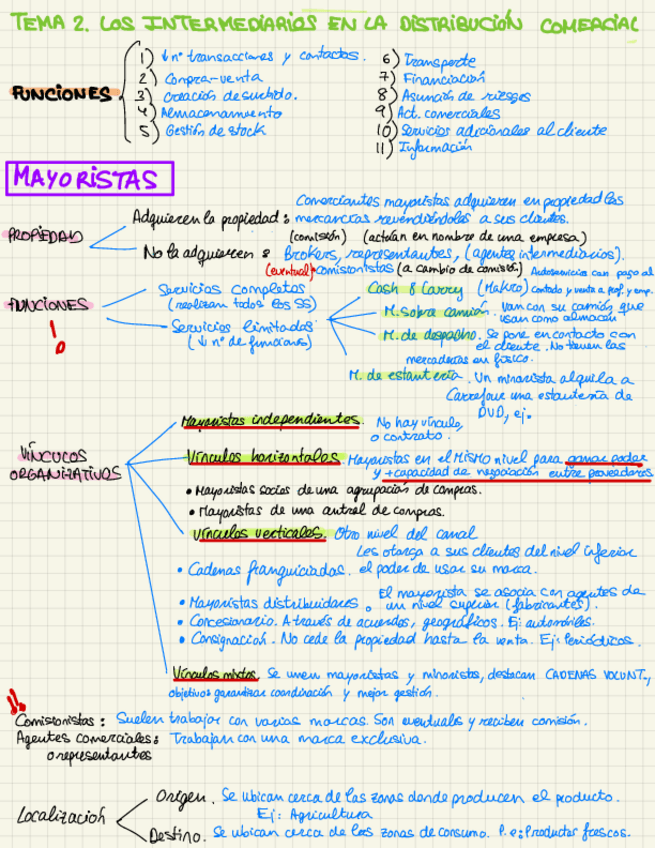 TEMA 2. LOS INTERMEDIARIOS EN LA DISTRIBUCIÓN COMERCIAL
FUNCIONES
1) ↓ nº transacciones y contactos.
2) Compra-venta
3) Creación de surtido.
4) Almacenamiento
5) Gestión de stock
6) Transporte
7) Financiación
8) Asunción de riesgos
9) Act. comerciales
10) Servicios adicionales al cliente
11) Información
MAYORISTAS
PROPIEDAD
Adquieren la propiedad: Comerciantes mayoristas adquieren en propiedad las
mercancías revendiéndolas a sus clientes.
(comisión) (actúan en nombre de una empresa)
No la adquieren: Brokers, representantes, (agentes intermediarios).
(eventual) comisionistas (a cambio de comisión)
FUNCIONES
!
Servicios completos
(realizan todos los SS)
Servicios limitados
(↓ nº de funciones)
Cash & Carry (Makro) Autoservicios con pago al
contado y venta a prof. y emp.
M. sobre camión. Van con su camión que
usan como almacén
M. de despacho. Se pone en contacto con
el cliente. No tienen las
mercaderías en físico.
M. de estantería. Un minorista alquila a
Carrefour una estantería de
DVD, ej.
VÍNCULOS
ORGANIZATIVOS
Mayoristas independientes. No hay vínculo,
o contrato.
Vínculos horizontales. Mayoristas en el MISMO nivel para ganar poder
y + capacidad de negociación entre proveedores
• Mayoristas socios de una agrupación de compras.
• Mayoristas de una central de compras.
Vínculos verticales. Otro nivel del canal
Les otorga a sus clientes del nivel inferior
• Cadenas franquiciadas. el poder de usar su marca.
• Mayoristas distribuidores. El mayorista se asocia con agentes de
un nivel superior (fabricantes).
• Concesionario. A través de acuerdos, geográficos. Ej: automóviles.
• Consignación. No cede la propiedad hasta la venta. Ej: Periódicos.
Vínculos mixtos. Se unen mayoristas y minoristas, destacan CADENAS VOLUNT.,
objetivos garantizar coordinación y mejor gestión.
!!
Comisionistas: Suelen trabajar con varias marcas. Son eventuales y reciben comisión.
Agentes comerciales: Trabajan con una marca exclusiva.
o representantes
Localización
Origen. Se ubican cerca de las zonas donde producen el producto.
Ej: Agricultura
Destino. Se ubican cerca de las zonas de consumo. P. ej: Productos frescos.